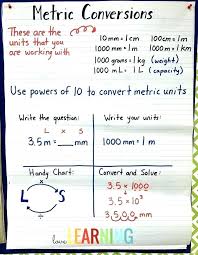 Metric Conversions
These are the
units that you
are working with
10mm = 1cm 100cm = 1m
1000mm = 1m 1000m = 1km
1000grams = 1kg (weight)
1000mL = 1L (capacity)
Use powers of 10 to convert metric units
Write the question:
L x S
3.5m = ___mm
Write your units:
1000mm = 1m
Handy Chart:
L S
x
÷
Convert and Solve:
3.5 x 1000
3.5 x 10³
3,500mm
love,
LEARNING